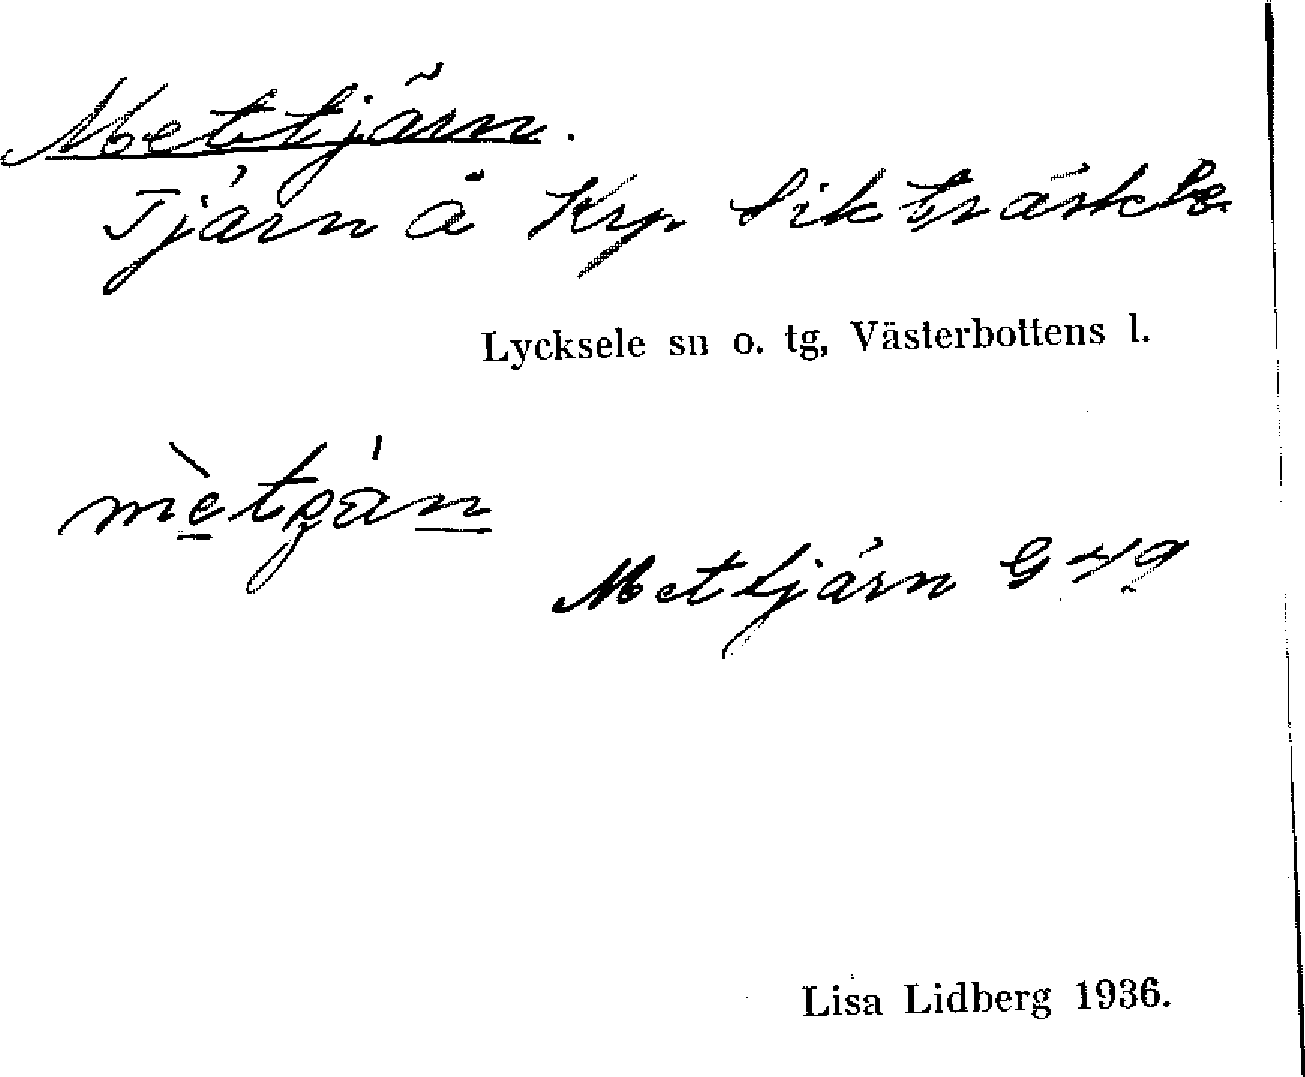 Mettjärn.
Tjärn å Krp Siktträsk
Lycksele sn o. tg, Västerbottens l.
Mettjärn G 49
Lisa Lidberg 1936.